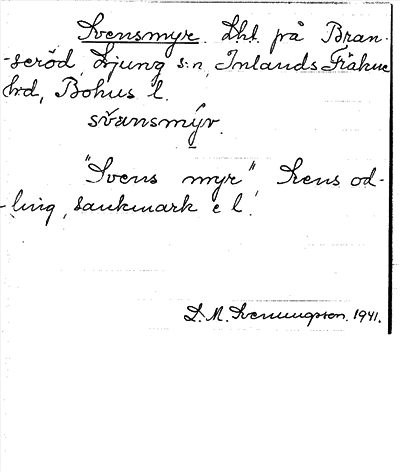 Svensmyr. Lhl. på Bran-
-seröd, Ljung s:n, Inlands Fräkne
hd, Bohus l.
svänsmýr.
"Svens myr", Svens od-
-ling, sankmark e l.
1941.